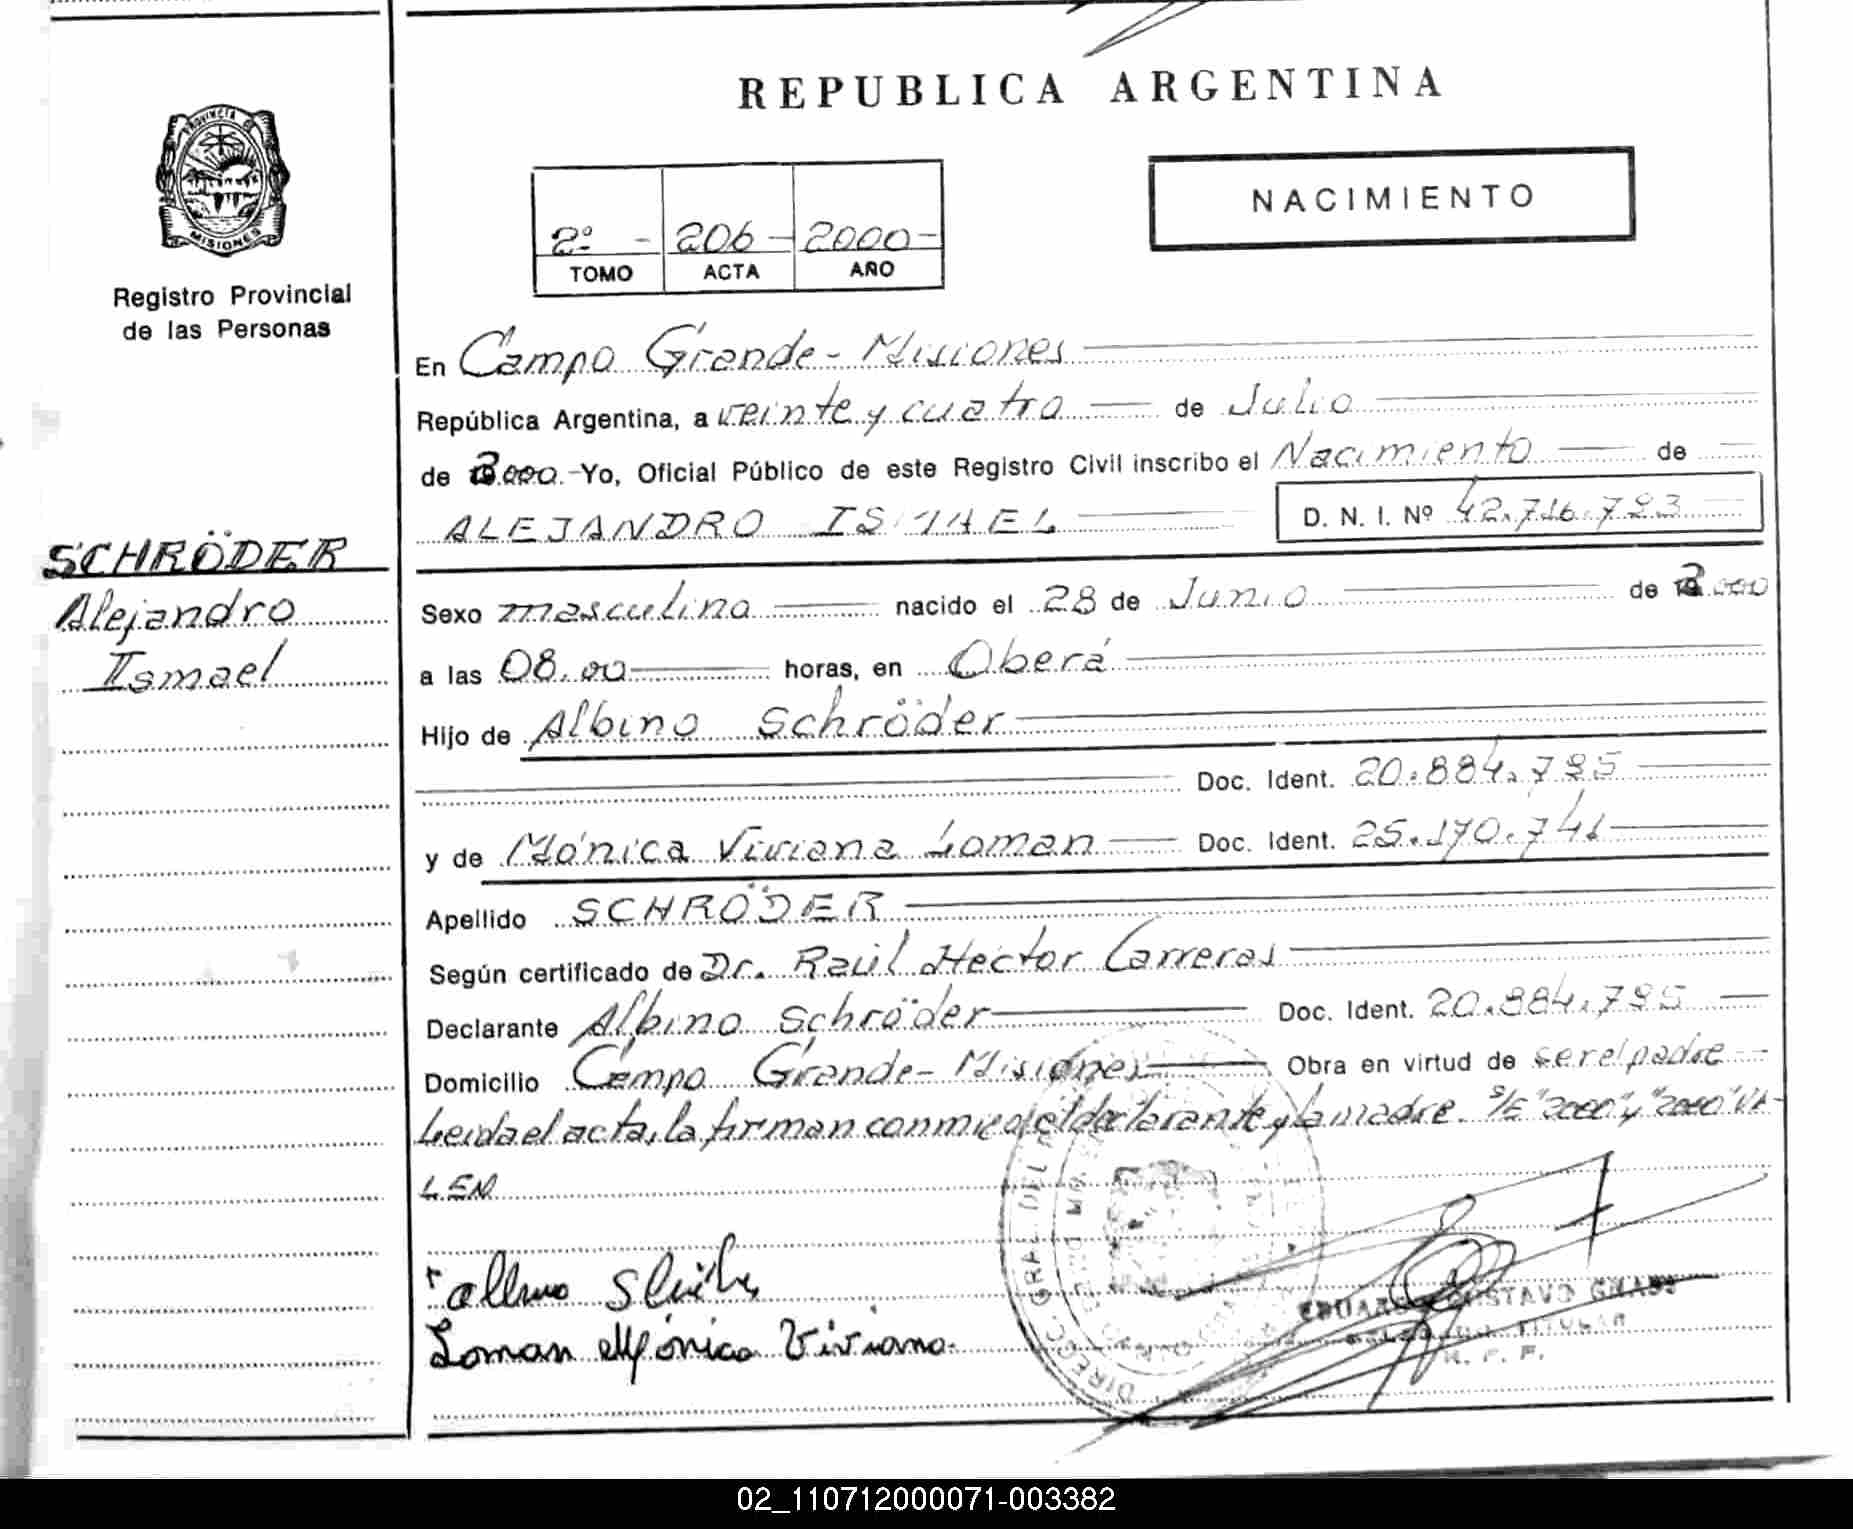 REPUBLICA ARGENTINA
PROVINCIA DE
MISIONES
Registro Provincial
de las Personas
NACIMIENTO
2º - 206 - 2000 -
TOMO ACTA AÑO
En Campo Grande - Misiones
República Argentina, a veinte y cuatro de Julio
de 2.000.- Yo, Oficial Público de este Registro Civil inscribo el Nacimiento de
ALEJANDRO ISMAEL D. N. I. Nº
SCHRÖDER
Alejandro
Ismael
Sexo masculino nacido el 28 de Junio de 2.000
a las 08.00 horas, en Oberá
Hijo de Albino Schröder
Doc. Ident. 20.884.795
y de Mónica Viviana Loman Doc. Ident. 25.170.741
Apellido SCHRÖDER
Según certificado de Dr. Raúl Hector Carreras
Declarante Albino Schröder Doc. Ident. 20.884.795
Domicilio Campo Grande - Misiones Obra en virtud de ser el padre
Leida el acta, la firman conmigo el declarante y la madre. S/E "2000" y "2000" VA-
LEN
Loman Mónica Viviana.
DIRECC. GRAL. DEL
EDUARDO GUSTAVO
TITULAR
02_110712000071-003382